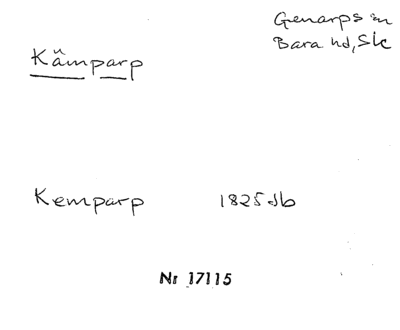 Genarps sn
Bara hd, Sk
Kämparp
Kemparp 1825 db
Nr 17115